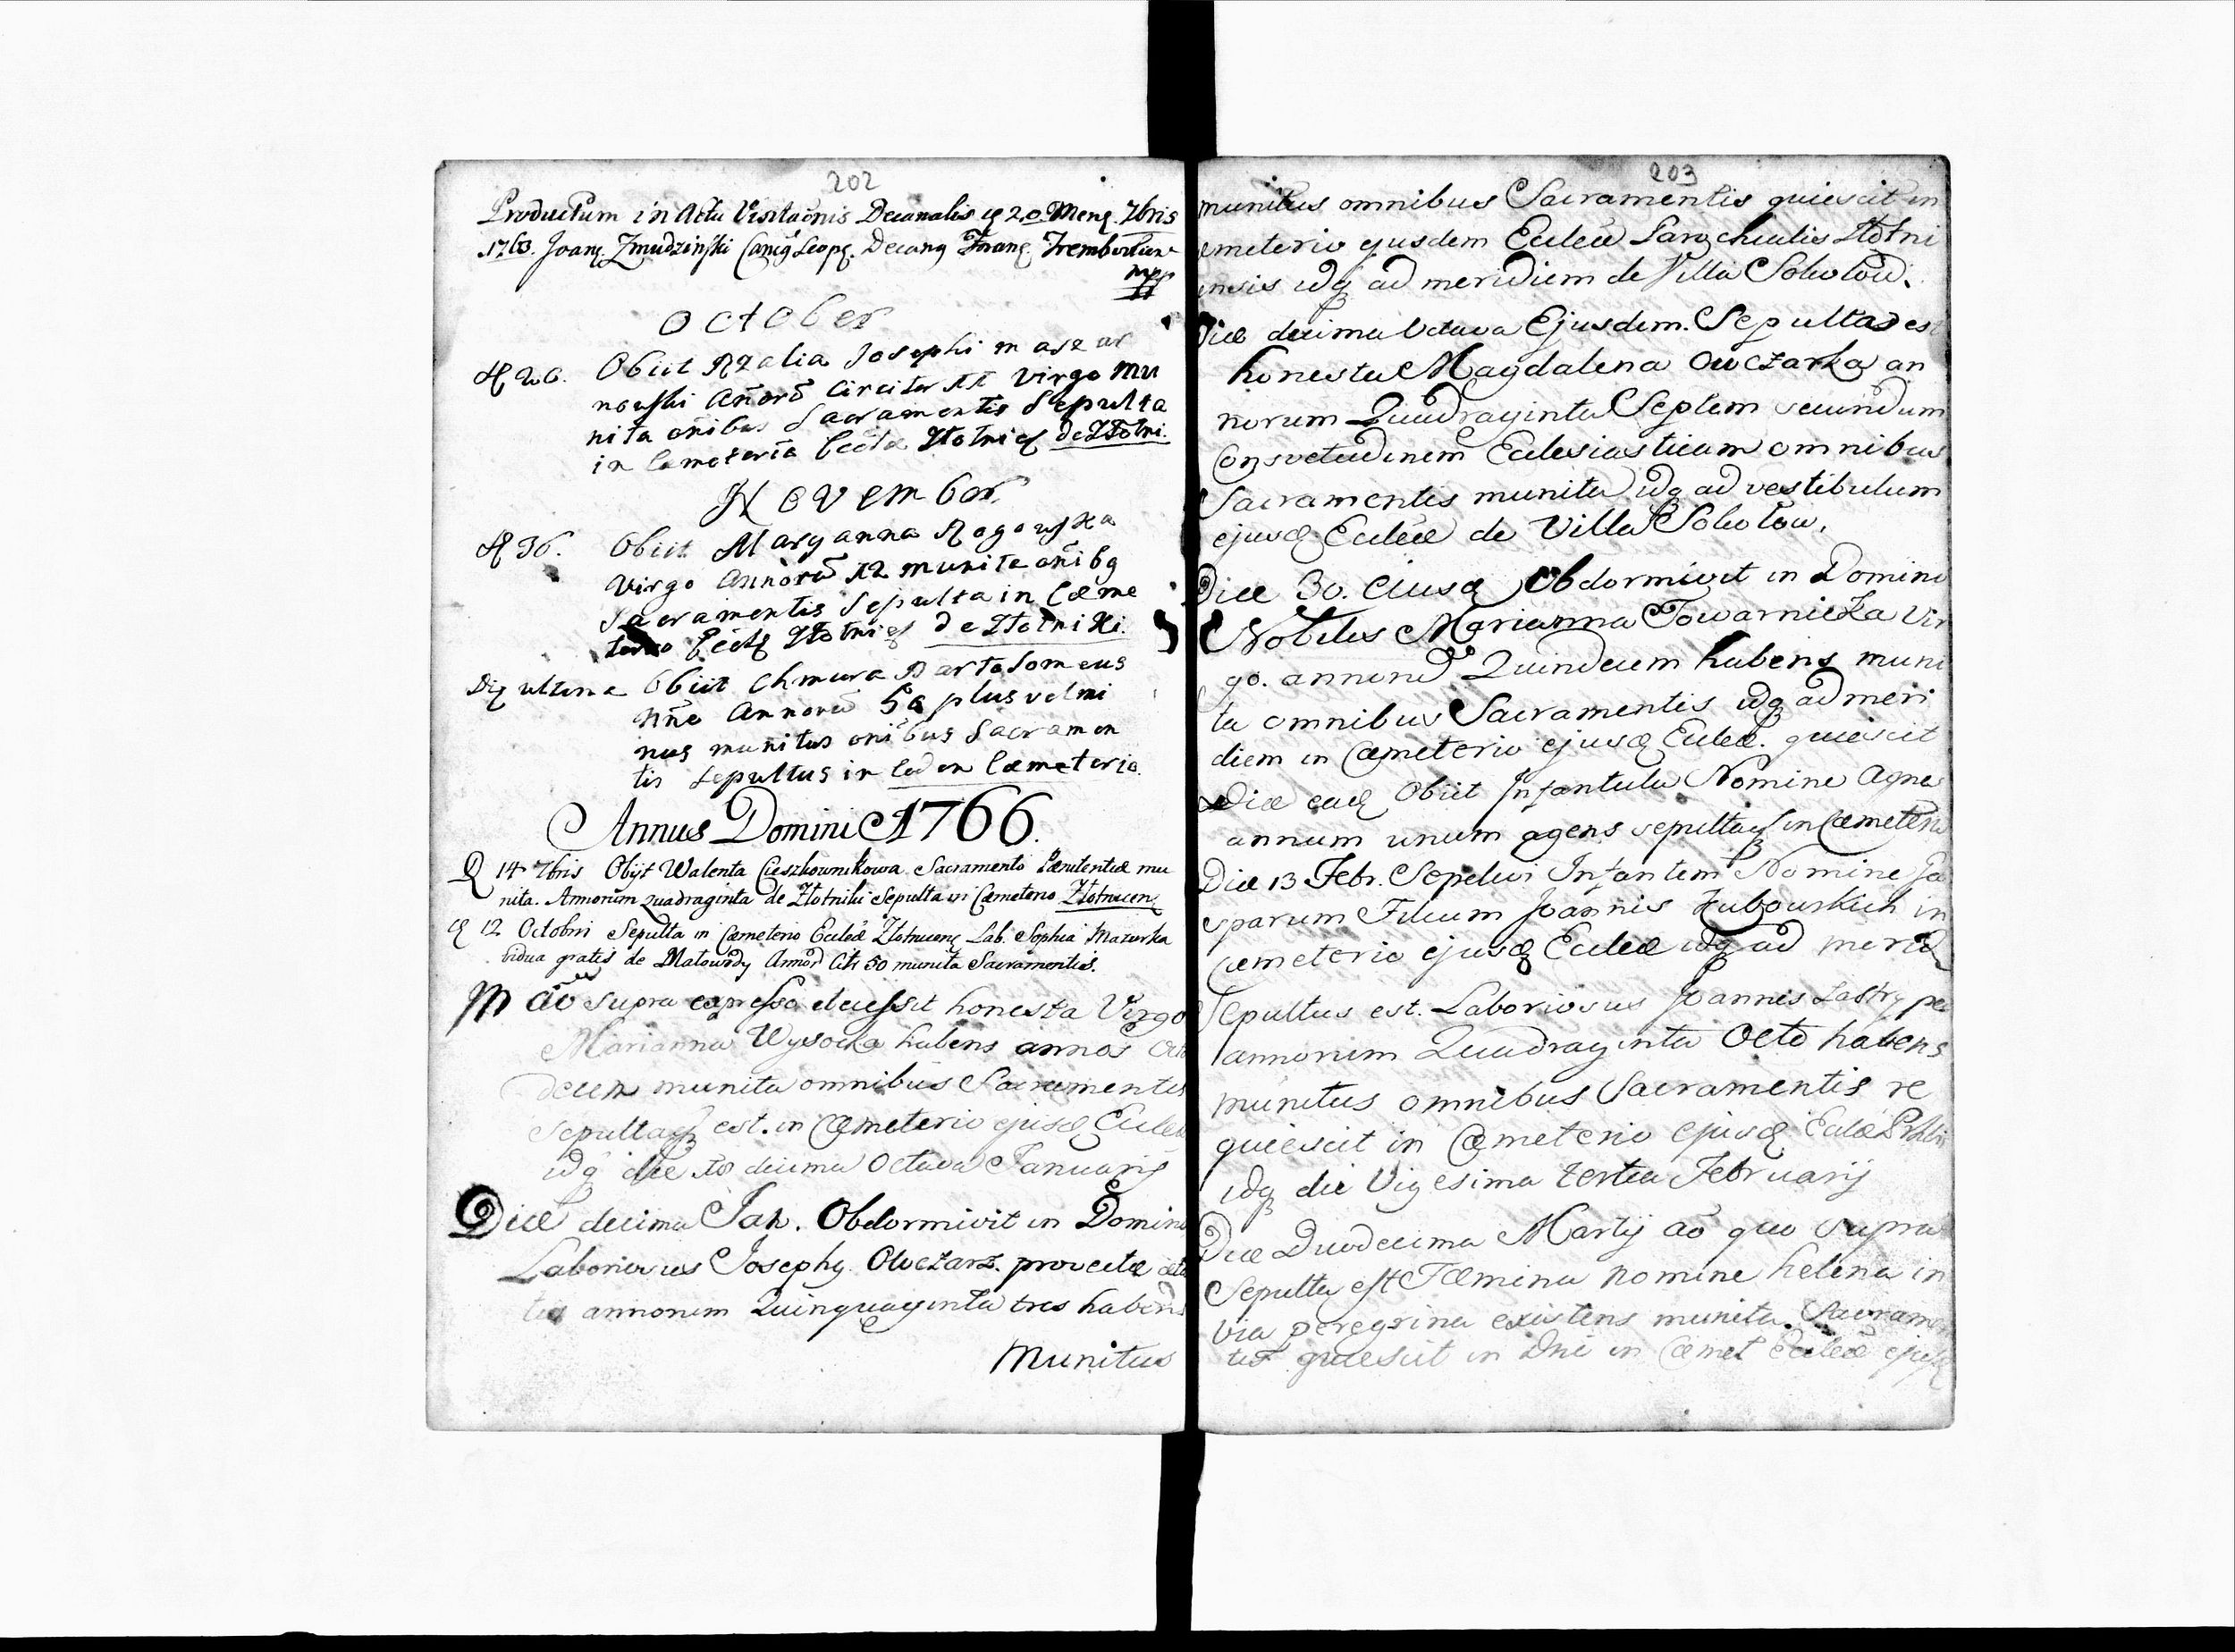 202
Productum in Actu Visitaōnis Decanalis q 20. Mens. 7bris
1763. Joans. Zmudzinski Canig Leops. Decang Frang. Trembowlan
mpp
October
D 26. Obiit Rzalia Josephi maszar
nowski Añorū Circiter XX virgo mu
nita oñibus Sacramentis Sepulta
in Cemeteria Eccła Złotnicę de Złotni.
November
D 36. Obiit Maryanna Rogowska
Virgo Annorū 12 munita oñibq
Sacramentis Sepulta in Cæme
terio Ecctę Złotnicę de Złotniki.
Dię ultima Obiit Chmura Bartolomeus
Nñe Annorū 50 plus vel mi
nus munitus oñibus Sacramen
tis Sepultus in Eodem Cæmeterio.
Annus Domini 1766.
D 14 7bris Obijt Walenta Cieszkownikowa Sacramento Pænitentiæ mu
nita. Annorum quadraginta de Złotniki Sepulta in Cæmeterio Złotnicen.
D 12 Octobri Sepulta in Cæmeterio Eccleæ Złotnicens Lab. Sophia Mazurka
vidua gratis de Małowody Annor. Citr 50 munita Sacramentis.
M aō supra expresso decessit honesta Virgo
Marianna Wysocka habens annos Octo
decem munita omnibus Sacramentis
Sepultaq est. in Cæmeterio ejusd Eccleæ
idq die decima Octava Januarij
Diæ decima Jan. Obdormivit in Domino
Laboriosus Josephg Owczarz. provectæ æta
tis annorum Quinquaginta tres habens
Munitus
203
munitus omnibus Sacramentis quiescit in
emeterio ejusdem Eccleæ Parochialis Złotni
censis idq ad meridiem de Villa Sokołow.
Diæ decima Octava Ejusdem. Sepulta est
honesta Magdalena Owczarka an
norum Quadraginta Septem secundum
Consvetudinem Eclesiasticam omnibus
Sacramentis munita idq ad vestibulum
ejusd Eccleæ de Villa Sokołow.
Diæ 30. Eiusd Obdormivit in Domino
Nobiles Marianna Towarnicka Vir
go. annorū Quindecim habens muni
ta omnibus Sacramentis idq ad meri
diem in Cæmeterio ejusd Eccleæ. quiescit
Diæ ead Obiit Infantula Nomine Agnes
annum unum agens sepultaq in Cæmeterio
Diæ 13 Febr. Sepelivi Infantem Nomine Ga
sparum Filium Joannis Zubowskich in
Cæmeterio ejusd Eccleæ idq ad merid
Sepultus est. Laboriosus Joannes
annorum Quadraginta Octo habens
munitus omnibus Sacramentis re
quiescit in Cæmeterio ejusd Eccleæ
idq die Vigesima tertia Februarij
Diæ Duodecima Martij aō quo supra
Sepulta est Fæmina nomine helena in
via peregrina existens munita. Sacramen
tis quiescit in Dno in Cæmet Eccleæ ejusd